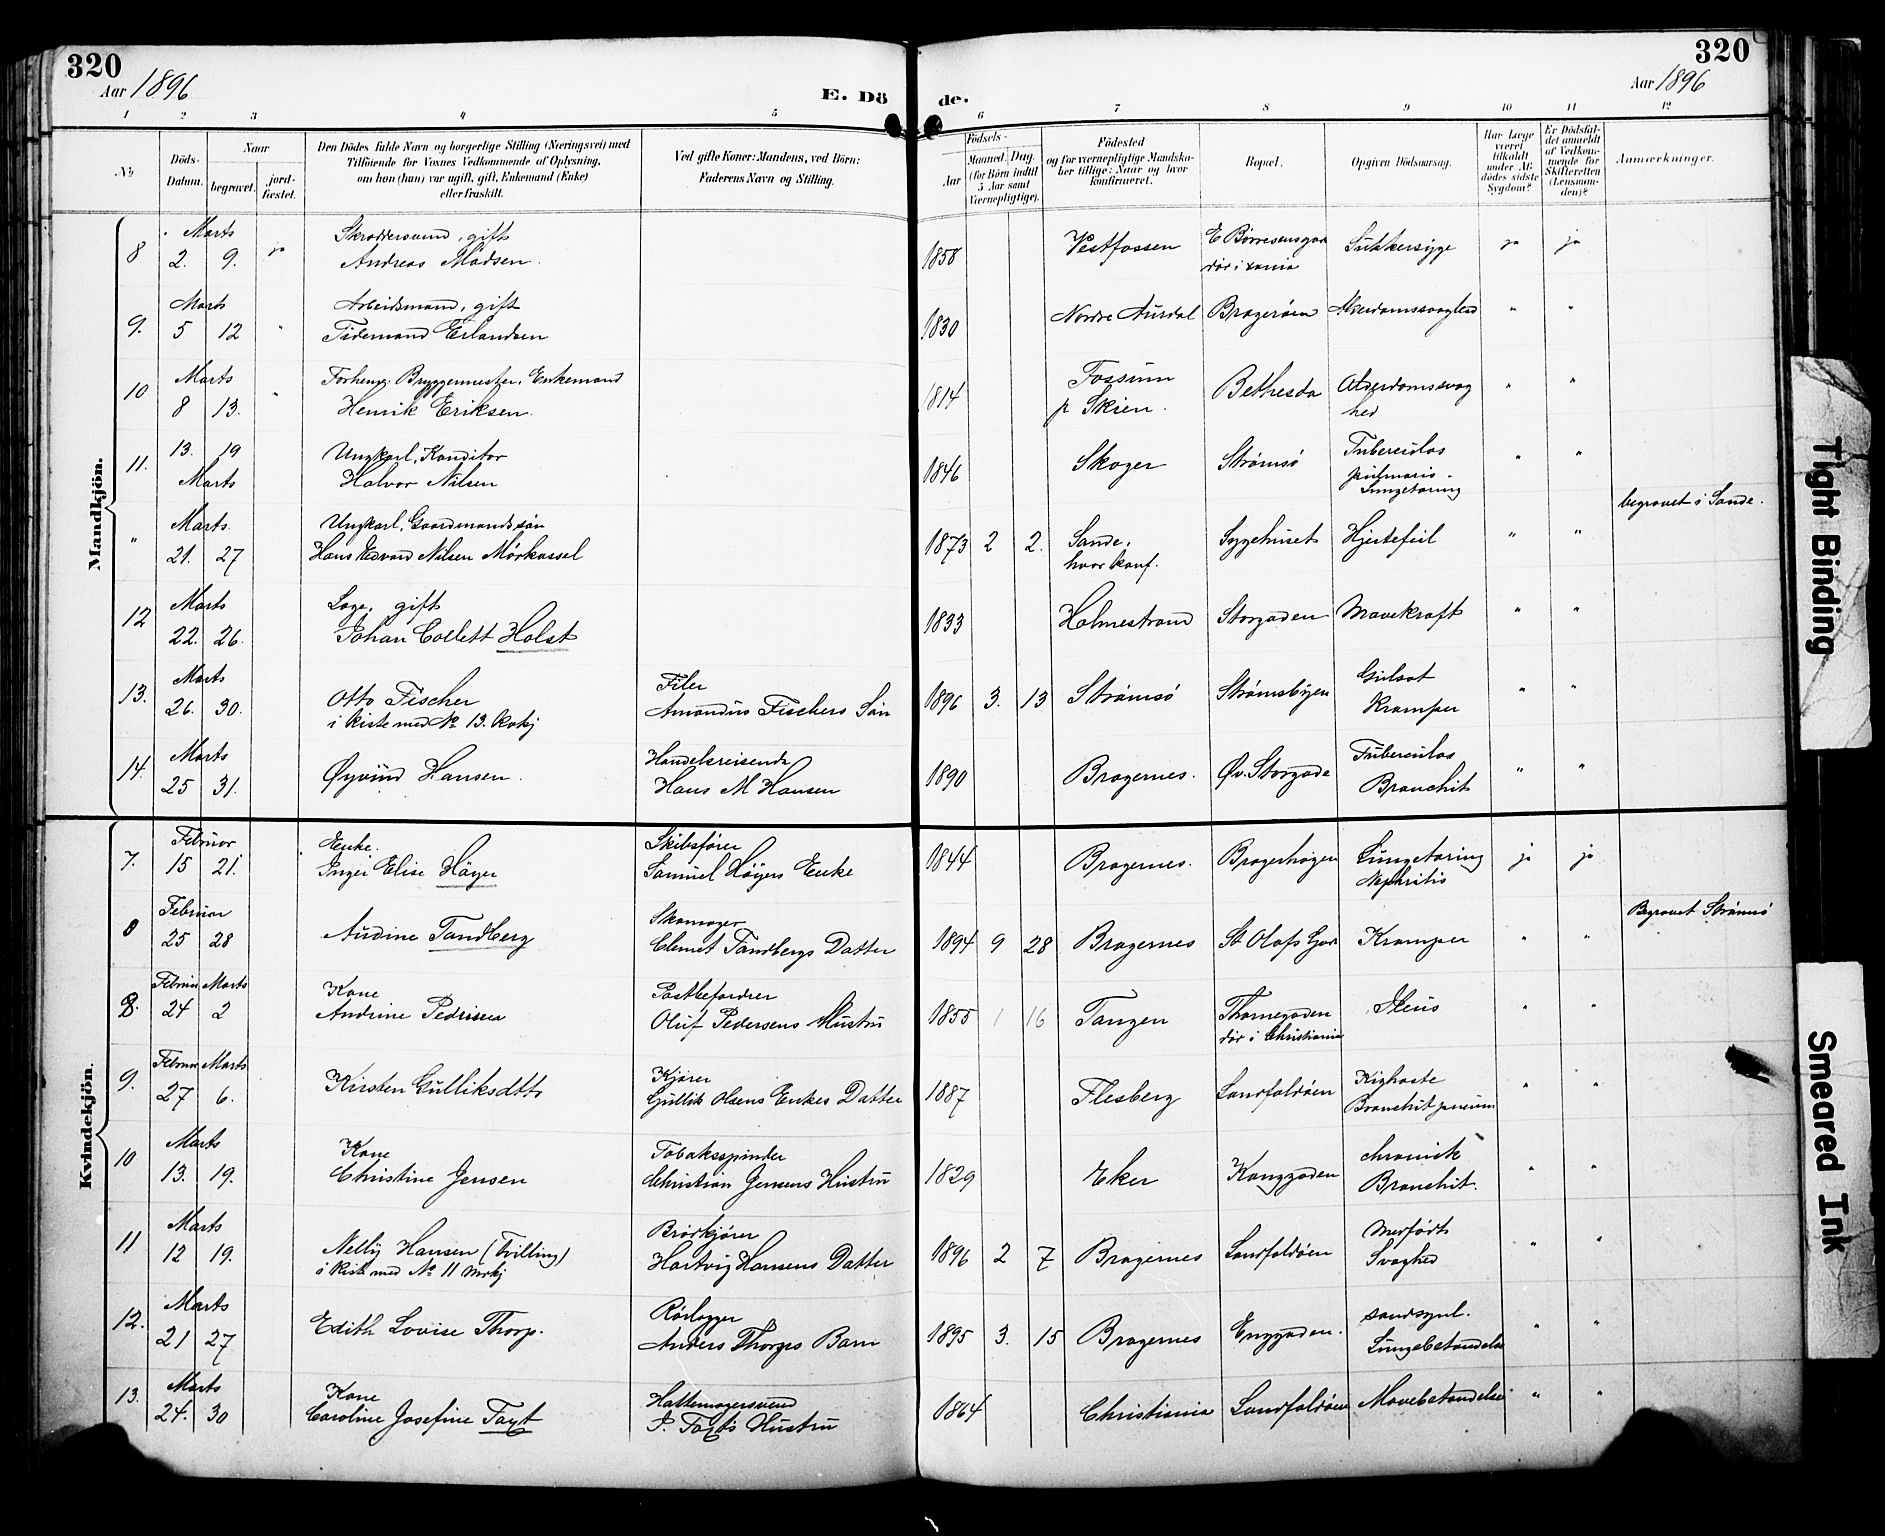 320
Aar 1896
E. Dö
de.
320
Aar 1896
1 2 3 4 5 6 7 8 9 10 11 12
No
Döds-Datum.
Naar
begravet.
jord-fæstet.
Den Dödes fulde Navn og borgerlige Stilling (Næringsvei) med
Tilföiende for Voxnes Vedkommende af Oplysning,
om han (hun) var ugift, gift, Enkemand (Enke)
eller fraskilt.
Ved gifte Koner: Mandens, ved Börn:
Faderens Navn og Stilling.
Födsels-
Aar
Maaned. Dag.
(for Börn indtil
5 Aar samt
Værnepligtige).
Födested
og for værnepligtige Mandska-
ber tillige: Naar og hvor
konfirmeret.
Bopæl.
Opgiven Dödsaarsag.
Har Læge
været
tilkaldt
under Af-
dödes sidste
Sygdom?
Er Dödsfal-
det anmeldt
af Vedkom-
mende for
Skifteretten
(Lensman-
den)?
Anmærkninger.
Mandkjön.
8 Marts 2. 9. ja
Skræddersvend, gift
Andreas Madsen.
1858 Vestfossen
Sukkersyge ja ja
9. Marts 5 12 "
Arbeidsmand, gift
Tidemand Erlandsen
1830 Nordre Aurdal Bragerøen Alderdomssvaghed " "
10 Marts 8 13. "
Forheng. Bryggemester. Enkemand
Henrik Eriksen.
1814 Fossum
p Skien.
Bethesda Alderdomssvag
hed " "
11. 13. 19 Marts
Ungkarl, Konditor
Halvor Nilsen
1846 Skoger Strømsø Tuberculos
pulmonis.
Lungetæring " "
" Marts. 21. 27
Ungkarl, Gaardmandssøn
Hans Edvard Nilsen Mørkassel
1873 2 2. Sande.
hvor konf.
Sygehuset Hjertefeil " "
begravet i Sande.
12 Marts 22. 26.
Læge, gift
Johan Collett Holst
1833 Holmestrand Storgaden Mavekræft " "
13. Marts 26. 30.
Otto Fischer
i Kiste med No 13. Kvkj
Filer
Amandus Fischers Søn
1896 3. 13 Strømsø Strømsbyen Gulsot
Kramper " "
14. Marts 25 31.
Øyvind Hansen.
Handelsreisende
Hans M Hansen
1890 Bragernes. Øv. Storgade Tuberculos
Bronchit " "
Kvindekjön.
7. Februar 15 21.
Enke.
Inger Elise Höyer
Skibsfører
Samuel Höyers Enke
1844 Bragernes. Lungetæring
Nephritis ja ja
Februar 25 28
Audine Tandberg
Skomager
Clemet Tandbergs Datter
1894 9 28 Bragernes St Olafs Gad Kramper " "
Begravet Strømsø
8. Februar 24 Marts 2
Kone
Andrine Pedersen
Postbefordrer
Oluf Pedersens Hustru
1855 1 16 Tangen Thornegaden
dør i Christiania
Ileus " "
9. Februar 27 Marts 6.
Kirsten Gulliksdttr
Kjører
Gullik Olsens Enkes Datter
1887 Flesberg Landfaldøen Kighoste
Bronchit pneum " "
10 Marts 13. 19.
Kone
Christine Jensen
Tobaksspinder
Christian Jensens Hustru
1829 Eker Konggaden chronisk
Bronchit. " "
11 Marts 12 19.
Nelly Hansen (Tvilling)
i Kiste med No 11 Mvkj
Brødkjører
Hartvig Hansens Datter
1896 2 7 Bragernes Landfaldøen Medfødt
Svaghed " "
12. Marts 21 27
Edith Lovise Thorp.
Rørlægger
Anders Thorps Barn
1895 3. 15 Bragernes Enggaden. sandsynl.
Lungebetændelse " "
13. Marts 24. 30
Kone
Caroline Josefine Toxt
Hattemagersvend
P. Toxts Hustru
1864 Christiania Landfaldøen Mavebetændelse " "
Tight Binding
Smeared Ink